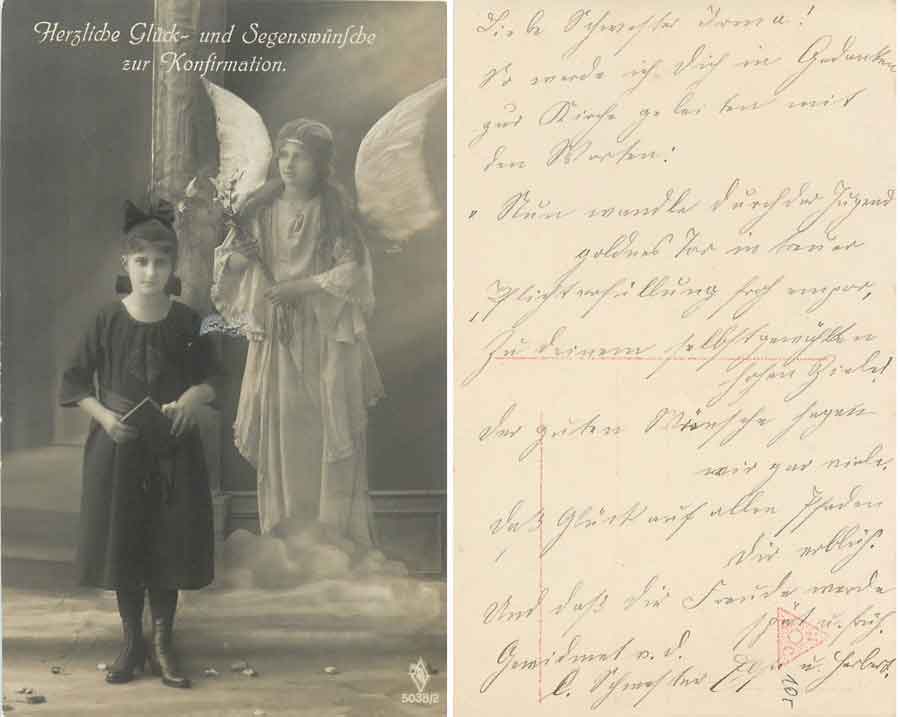 Herzliche Glück- und Segenswünsche
zur Konfirmation.
5038/2
Liebe Schwester Irma!
So werde ich Dich in Gedanken
zur Kirche geleiten mit
den Worten:
"Nun wandle durch der Jugend
goldnes Tor in treuer
Pflichterfüllung froh empor,
Zu deinem selbstgewählten
hohen Ziele!
Der guten Wünsche hegen
wir gar viele,
Daß Glück auf allen Pfaden
Dir erblüh.
Und daß die Freude werde
spät u. früh.
Gewidmet v. d.
l. Schwester u. Herbert.
105